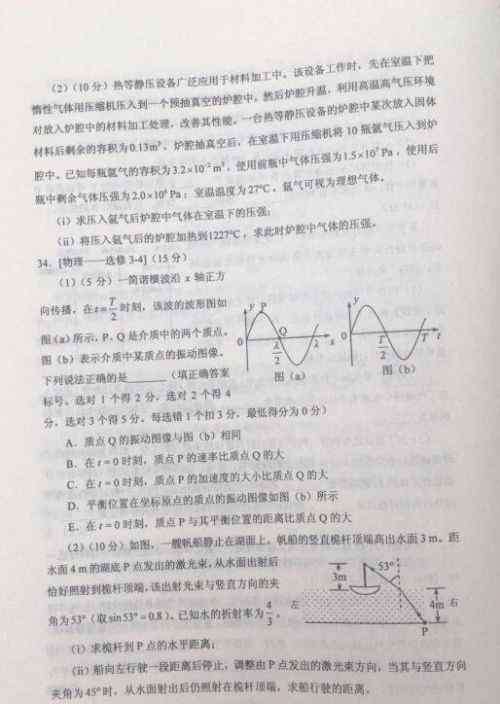 (2)(10分)热等静压设备广泛应用于材料加工中。该设备工作时，先在室温下把
惰性气体用压缩机压入到一个预抽真空的炉腔中，然后炉腔升温，利用高温高气压环境
对放入炉腔中的材料加工处理，改善其性能。一台热等静压设备的炉腔中某次放入固体
材料后剩余的容积为0.13m³，炉腔抽真空后，在室温下用压缩机将10瓶氩气压入到炉
腔中。已知每瓶氩气的容积为3.2×10⁻²m³，使用前瓶中气体压强为1.5×10⁷Pa，使用后
瓶中剩余气体压强为2.0×10⁶Pa；室温温度为27℃。氩气可视为理想气体。
(i)求压入氩气后炉腔中气体在室温下的压强；
(ii)将压入氩气后的炉腔加热到1227℃，求此时炉腔中气体的压强。
34. [物理——选修3-4](15分)
(1)(5分)一简谐横波沿x轴正方
向传播，在t=T/2时刻，该波的波形图如
图(a)所示，P、Q是介质中的两个质点。
图(b)表示介质中某质点的振动图像。
下列说法正确的是______(填正确答案
标号。选对1个得2分，选对2个得4
分，选对3个得5分。每选错1个扣3分，最低得分为0分)
y P Q 0 λ/2 λ x
图(a)
y 0 T/2 T t
图(b)
A．质点Q的振动图像与图(b)相同
B．在t=0时刻，质点P的速率比质点Q的大
C．在t=0时刻，质点P的加速度的大小比质点Q的大
D．平衡位置在坐标原点的质点的振动图像如图(b)所示
E．在t=0时刻，质点P与其平衡位置的距离比质点Q的大
(2)(10分)如图，一艘帆船静止在湖面上，帆船的竖直桅杆顶端高出水面3m。距
水面4m的湖底P点发出的激光束，从水面出射后
恰好照射到桅杆顶端，该出射光束与竖直方向的夹
角为53°(取sin53°=0.8)。已知水的折射率为4/3。
3m 53° 左 4m 右 P
(i)求桅杆到P点的水平距离；
(ii)船向左行驶一段距离后停止，调整由P点发出的激光束方向，当其与竖直方向
夹角为45°时，从水面射出后仍照射在桅杆顶端，求船行驶的距离。